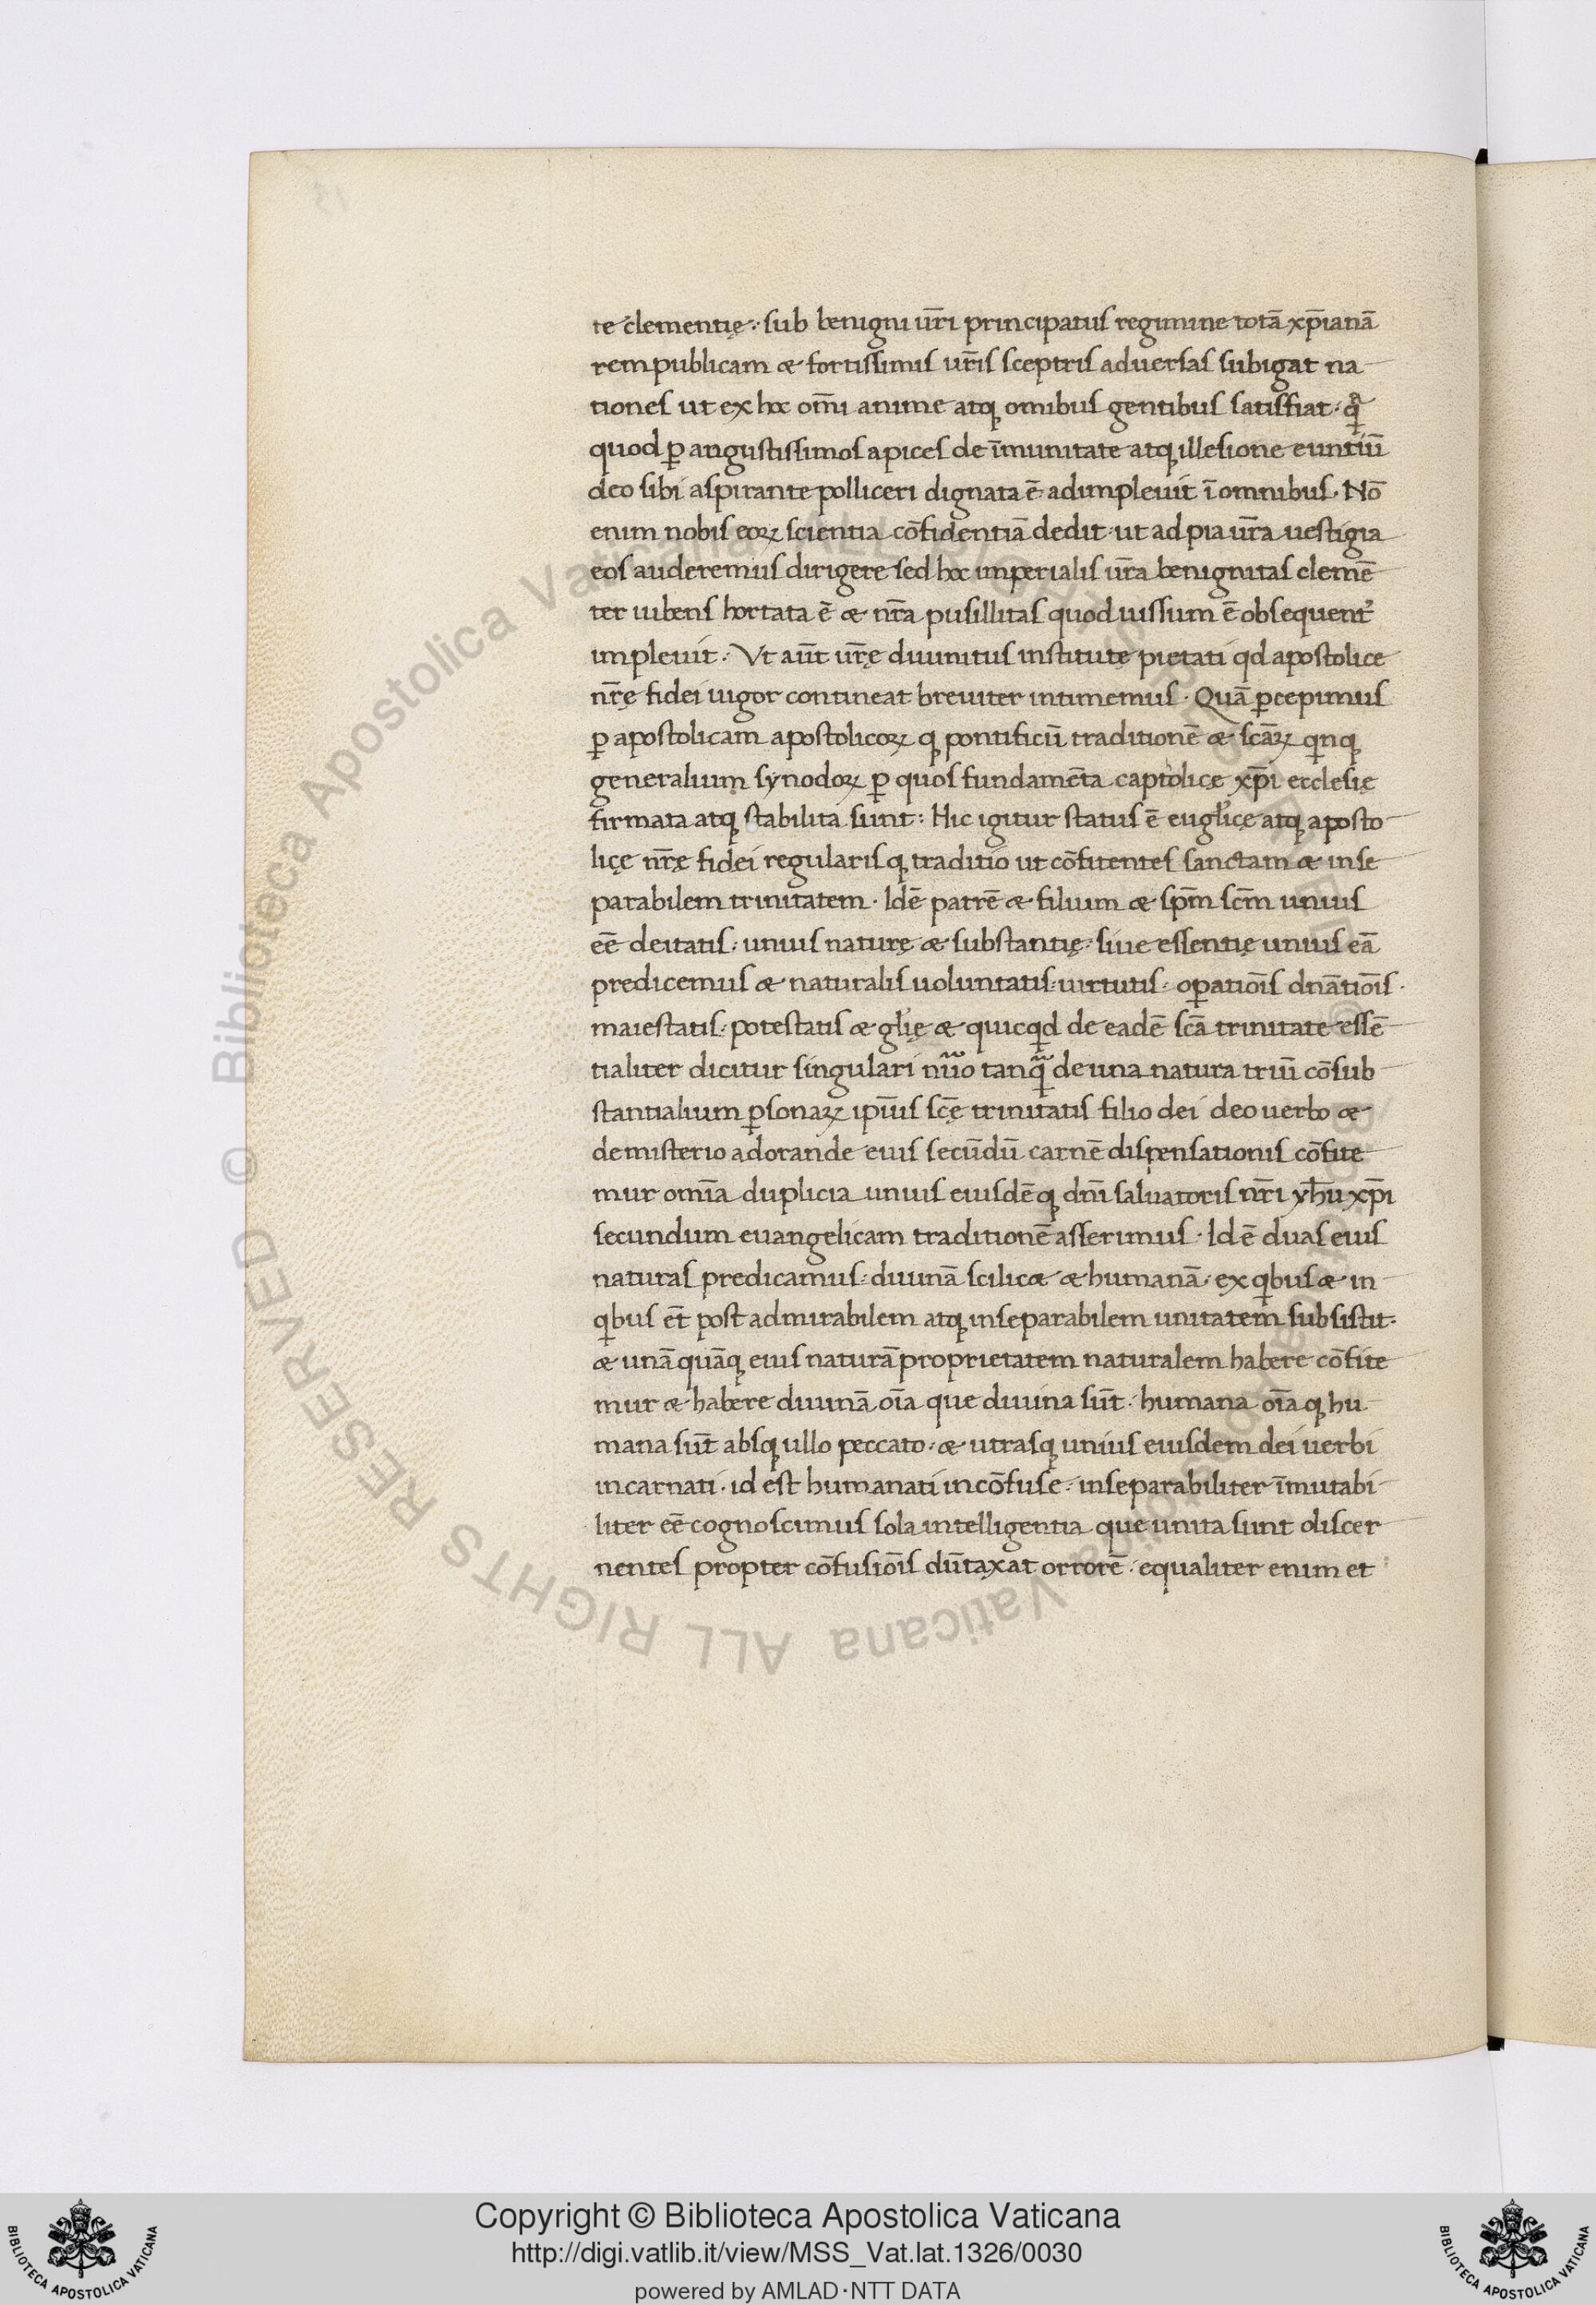 te clementię: sub benigni ur̄i principatus regimine totā xp̄ianā
rempublicam & fortissimis ur̄is sceptris aduersas subigat na
tiones ut ex hoc om̄i anime atq; omibus gentibus satisfiat. qᷓ
quod ꝑ angustissimos apices de īmunitate atq; illesione euntiū
deo sibi aspirante polliceri dignata ē adimpleuit ī omnibus. Nō
enim nobis eoꝝ scientia cōfidentiā dedit. ut ad pia ur̄a uestigia
eos auderemus dirigere sed hoc imperialis ur̄a benignitas clemē
ter iubens hortata ē & nr̄a pusillitas quod iussum ē obsequent᷒
impleuit. Vt aūt ur̄ę diuinitus institutę pietati qd apostolice
nr̄ę fidei uigor contineat breuiter intimemus. Quā ꝑcepimus
ꝑ apostolicam apostolicoꝝ q; pontificū traditionē & scāꝝ qinq;
generalium synodoꝝ ꝑ quos fundamēta captolicę xp̄i ecclesię
firmata atq; stabilita sunt: Hic igitur status ē euglicę atq; aposto
licę nr̄ę fidei regularis q; traditio ut cōfitentes sanctam & inse
parabilem trinitatem. Idē patrē & filium & sp̄m sc̄m unius
eē deitatis: unius naturę & substantię: siue essentię unius eā
predicemus & naturalis uoluntatis: uirtutis: oꝑatiōis dn̄atiōis.
maiestatis: potestatis & glię & quicqid de eadē scā trinitate essē
tialiter dicitur singulari nuo tanqᷓ de una natura triū cōsub
stantialium ꝑsonaꝝ ipīus scę̄ trinitatis filio dei deo uerbo &
de misterio adorande eius secūdū carnē dispensationis cōfite
mur omīa duplicia unius eiusdēq; dn̄i saluatoris nr̄i yh̄u xp̄i
secundum euangelicam traditionē asserimus. Idē duas eius
naturas predicamus: diuinā scilic& & humanā. ex qibus & in
qibus ēt post admirabilem atq; inseparabilem unitatem subsistit:
& unā quāq; eius naturā proprietatem naturalem habere cōfite
mur & habere diuinā oīa que diuina sūt. humana oīa q; hu
mana sūt absq; ullo peccato: & utrasq; unius eiusdem dei uerbi
incarnati. id est humanati incōfuse: inseparabiliter īmutabi
liter eē cognoscimus sola intelligentia que unita sunt discer
nentes propter cōfusiōis dūtaxat orrorē. equaliter enim et
© Biblioteca Apostolica Vaticana ALL RIGHTS RESERVED
Copyright © Biblioteca Apostolica Vaticana
http://digi.vatlib.it/view/MSS_Vat.lat.1326/0030
powered by AMLAD·NTT DATA
BIBLIOTECA APOSTOLICA VATICANA
BIBLIOTECA APOSTOLICA VATICANA